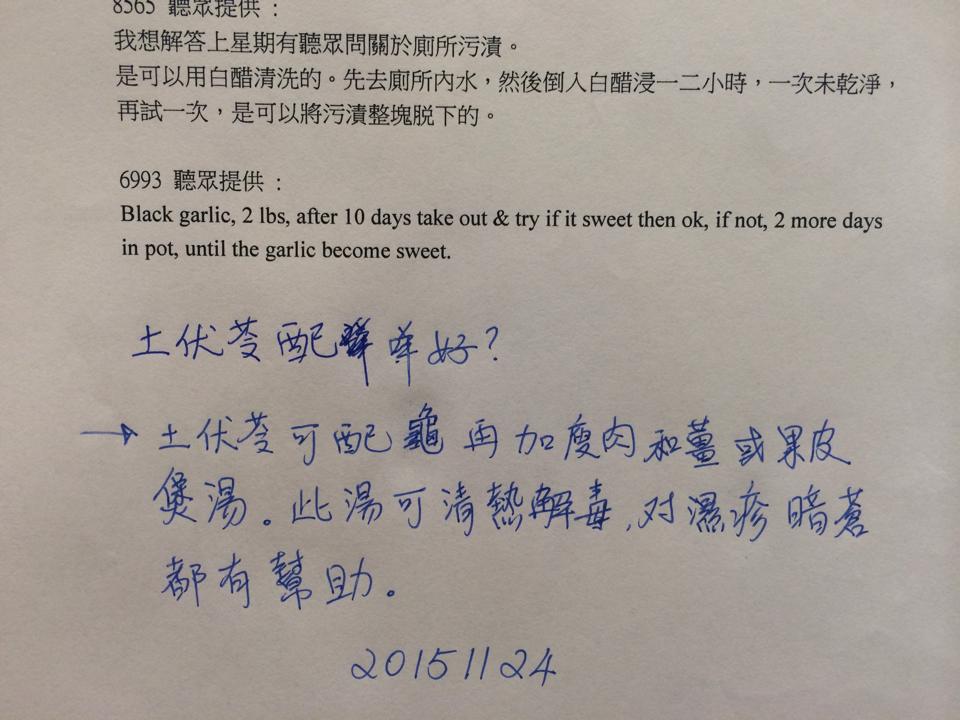 8565 聽眾提供：
我想解答上星期有聽眾問關於廁所污漬。
是可以用白醋清洗的。先去廁所內水，然後倒入白醋浸一二小時，一次未乾淨，
再試一次，是可以將污漬整塊脱下的。
6993 聽眾提供：
Black garlic, 2 lbs, after 10 days take out & try if it sweet then ok, if not, 2 more days
in pot, until the garlic become sweet.
土伏苓配咩好？
→ 土伏苓可配龜再加瘦肉和薑或果皮
煲湯。此湯可清熱解毒，对濕疹暗蒼
都有幫助。
20151124